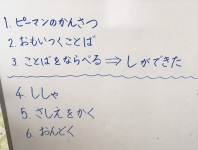 1. ピーマンのかんさつ
2. おもいつくことば
3. ことばをならべる ⇒ しができた
4. ししゃ
5. さしえをかく
6. おんどく